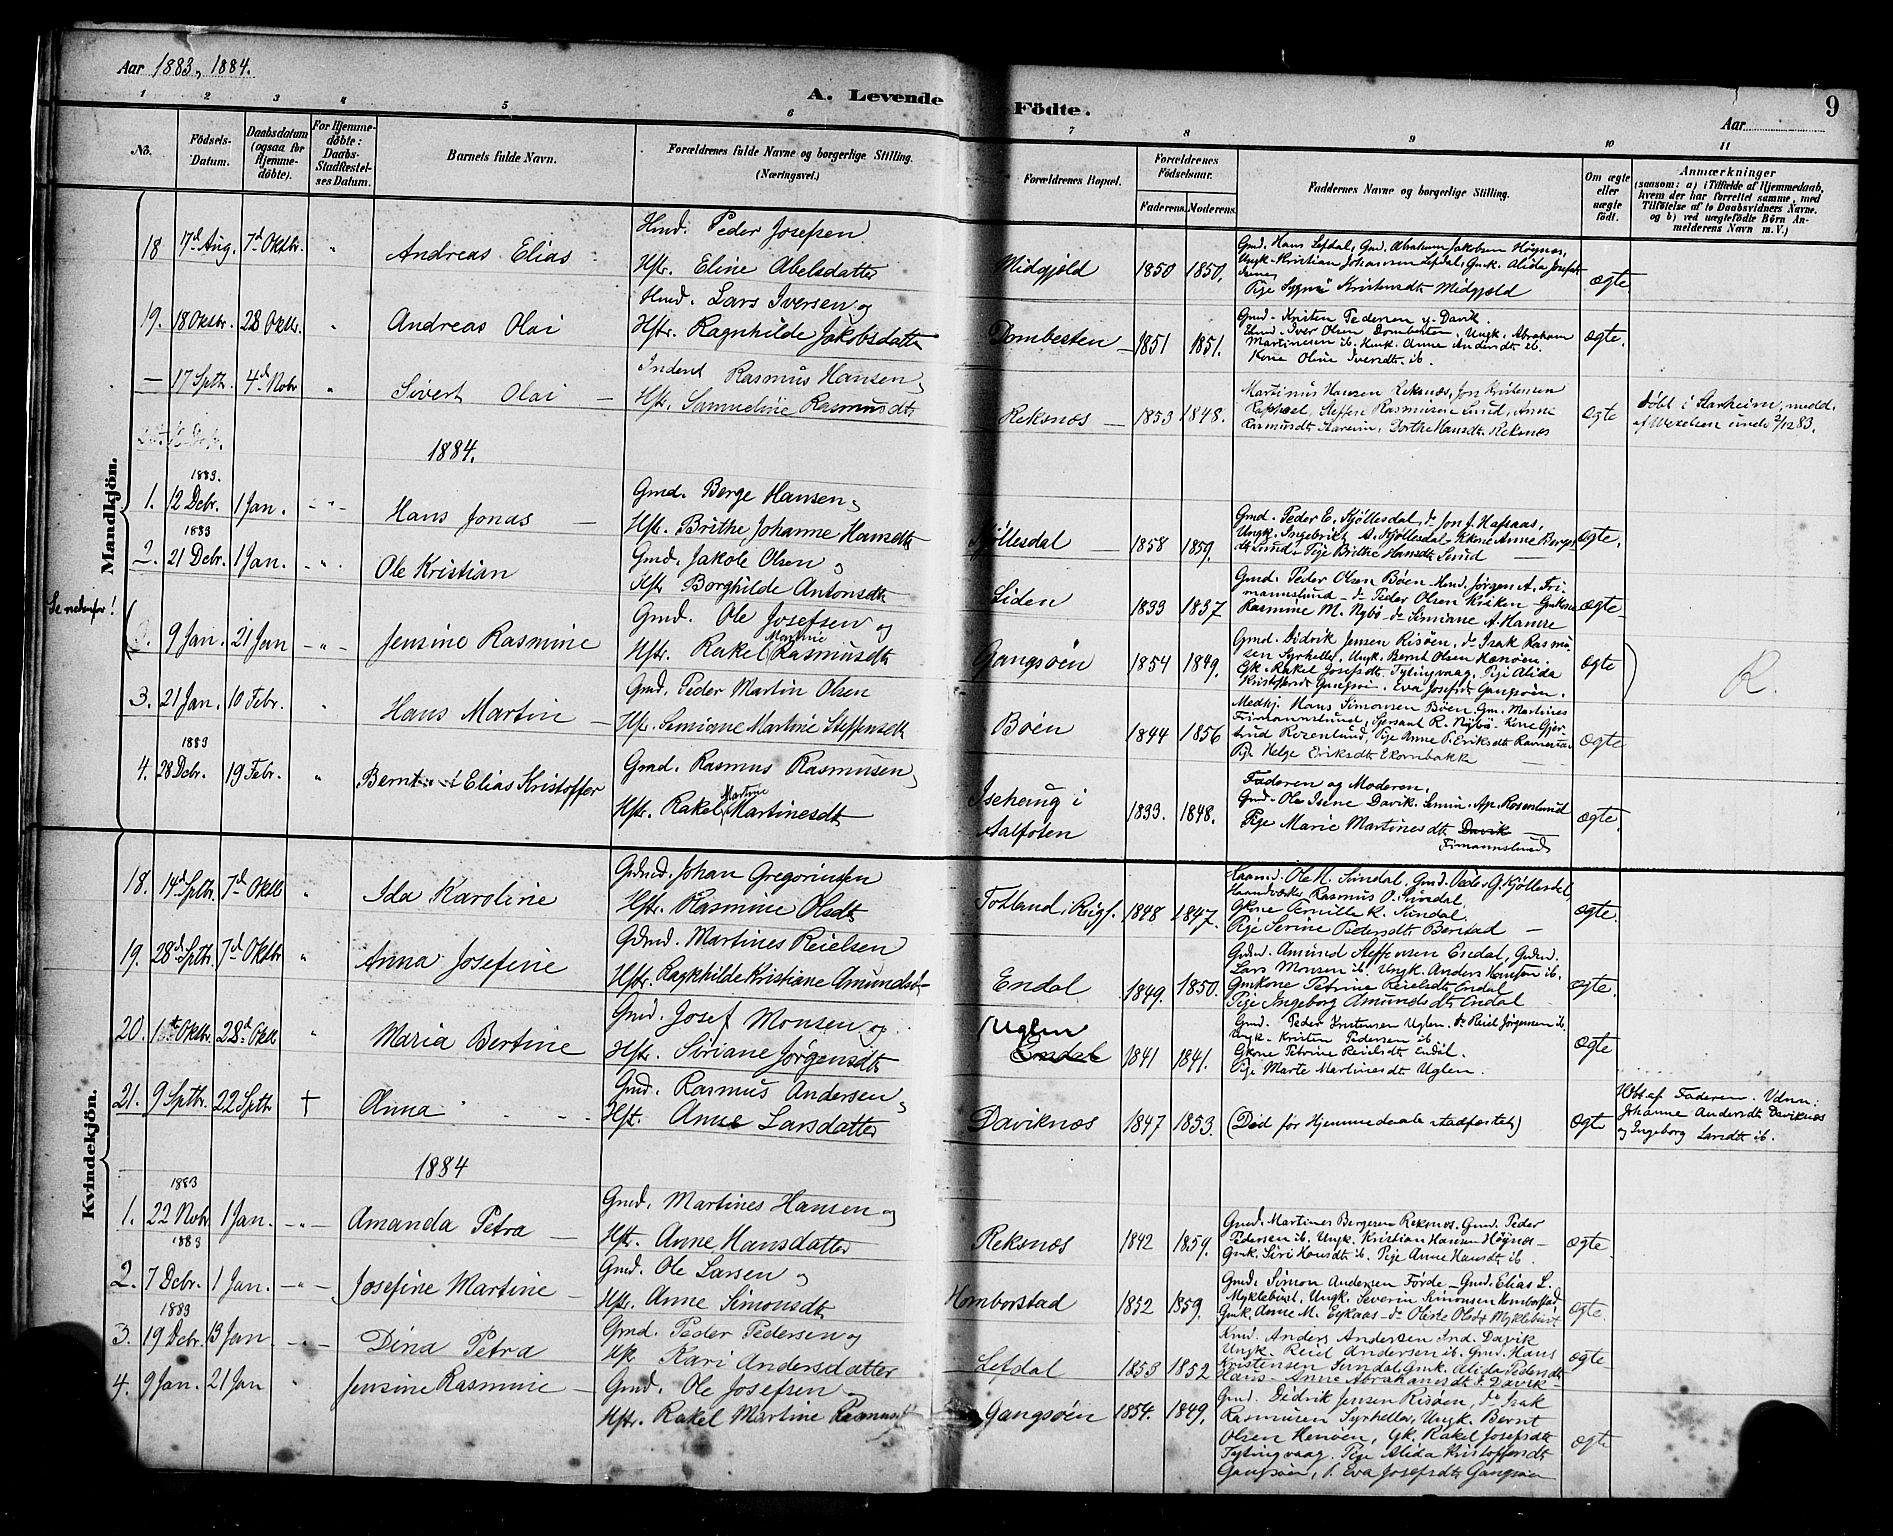 Aar 1883, 1884.
A. Levende Födte.
Aar
9
1 2 3 4 5 6 7 8 9 10 11
No.
Födsels-Datum.
Daabsdatum (ogsaa for Hjemmedöbte).
For Hjemmedöbte: Daabs-Stadfæstelses Datum.
Barnets fulde Navn.
Forældrenes fulde Navne og borgerlige Stilling. (Næringsvei.)
Forældrenes Bopæl.
Forældrenes Födselsaar.
Faderens. Moderens.
Faddernes Navne og borgerlige Stilling.
Om ægte eller uægte födt.
Anmærkninger
(saasom: a) i Tilfælde af Hjemmedaab, hvem der har forrettet samme, med Tilföielse af to Daabsvidners Navne, og b) ved uægtefödte Börn Anmelderens Navn m. V.)
Mandkjön.
18 17d Aug. 7d Oktbr. " Andreas Elias
Gmd. Peder Josefsen
Hstr. Eline Abelsdatter
Midgjøld 1850 1850.
Gmd. Hans Lefdal, Gmd. Abraham Jakobsen Høynæs,
Ungk. Kristian Johannsen Lefdal, Gmk. Alida Josefsdt
Pige Kristensdt Midgjøld
ægte
19. 18 Oktbr. 28 Oktbr. " Andreas Olai
Gmd. Lars Iversen og
Hstr. Ragnhilde Jakobsdatter
Dombesten 1851 1851.
Gmd. Kristen Pedersen y. Davik.
Gmd. Iver Olsen Dombesten, Ungk. Abraham
Martinesen ib. Gmk. Anne Andersdt ib.
Kone Oline Iversdt. ib.
ægte.
— 17 Sptbr. 4d Novbr " Sivert Olai —
Inderst Rasmus Hansen
Hstr. Samueline Rasmusdt.
Reksnæs — 1853 1848.
Martinus Hansen Reksnæs, Jon Kristensen
Steffen Rasmusen Lund, Anne
Rasmusdt Dorthe Hansdt. Reksnæs
ægte
Døbt i Starheim, medd.
af Wexelsen 83.
1884.
1883.
1. 12 Debr. 1 Jan. - " - Hans Jonas —
Gmd. Berge Hansen
Hstr. Brithe Johanne Hansdtr
Kjøllesdal — 1858 1859.
Gmd. Peder E. Kjøllesdal, do Jon J. Hafsaas,
Ungk. Ingebrikt A. Kjøllesdal Kone Anne Berges
Lund. Pige Brithe Hansdt. Lund
ægte.
1883
2. 21 Debr. 1 Jan. - " . Ole Kristian
Gmd. Jakob Olsen og
Hstr Borghilde Antonsdt
Liden 1833 1837
Gmd. Peder Olsen Bøen Gmd. Jørgen A. Fri-
mannslund — do Peder Olsen Kriken Gmkone
Rasmine M. Nybø do Simiane A. Hamre
ægte
Se nedenfor!
3. 9 Jan. 21 Jan - " - Jensine Rasmine
Gmd. Ole Josefsen og
Hstr. Rakel Martine Rasmusdt
Gangsøen 1854 1849.
Gmd. Didrik Jensen Risøen, do Isak Rasmu-
sen Syrhella, Ungk. Bernt Olsen Henøen.
Gk. Rakel Josefsdt. Tytingvaag, Pige Alida
Kristoffersdt Gangsøn. Eva Josefsdt Gangsøen.
ægte
R.
3. 21 Jan. 10 Febr. " Hans Martin —
Gmd. Peder Martin Olsen
Hstr. Simiane Martine Steffensdt
Bøen 1844 1856
Hans Simonsen Bøen, Gm. Martines
Frimannslund, Sersant R. Nybø. Kone Gjer-
trud Rosenlund, Pige Anne P. Eriksdt
Pige Helge Eriksdt Ekornbakke
ægte
1883
4. 28 Debr. 19 Febr. " Bernt Elias Kristoffer
Gmd. Rasmus Rasmusen
Hstr. Rakel Martine Martinesdt
Isehaug i
Aalfoten
1833. 1848.
Faderen og Moderen,
Gmd. Ole Isene Davik. Semin. Ap. Rosenlund
Pige Marie Martinesdt. Davik —
Frimannslund
ægte.
Kvindekjön.
18. 14d Sptbr. 7d Oktb " Ida Karoline
Gdmd. Johan Gregoriusen
Hstr. Rasmine Olsdt
Totland i 1848 1847.
Ole M. Sundal, Gmd. Peder G. Kjøllesdal
Haandværker Rasmus O. Sundal.
Gkone Pernille K. Sundal.
Pige Serine Pedersdt Berstad —
ægte.
19. 28d Sptbr. 7d Oktbr " Anna Josefine
Gdmd. Martines Reielsen
Hstr. Ragnhilde Kristiane Amundsd.
Endal 1849. 1850.
Gdmd. Amund Steffensen Endal, Gdmd.
Lars Monsen ib. Ungk. Anders Hansen ib.
Gmkone Petrine Reielsdt Endal
Pige Ingeborg Amundsdt. Endal
ægte.
20. 1ste Oktbr. 28d Oktb " Maria Bertine
Gmd. Josef Monsen og
Hstr. Søriane Jørgensdt.
Uglen
Endal
1841 1841.
Gmd. Peder Kristensen Uglen. do Reiel Jørgensen ib.
Ungk. Kristen Pedersen ib.
Gkone Petrine Reielsdt Endal.
Pige Marte Martinesdt Uglen.
ægte
21. 9 Sptbr. 22 Sptbr † Anna
Gmd. Rasmus Andersen
Hstr. Anne Larsdatter
Daviknæs 1847 1853.
(Død før Hjemmedaabs stadfæstet)
ægte
Døbt af Faderen. Vidn:
Johanne Andersdt Daviknæs
og Ingeborg Larsdt ib.
1884
1883
1. 22 Nobr 1 Jan. - " - Amanda Petra —
Gmd. Martines Hansen og
Hstr. Anne Hansdatter
Reksnæs 1842 1859.
Gmd. Martines Bergesen Reksnæs. Gmd. Peder
Pedersen ib. Ungk. Kristian Hansen Høynæs —
Gmk. Siri Hansdt ib. Pige Anne Hansdt ib.
ægte.
1883
2. 7 Debr. 1 Jan. - " - Josefine Martine —
Gmd. Ole Larsen og
Hstr. Anne Simonsdt.
Homborstad 1852 1859.
Gmd. Simon Andersen Førde — Gmd. Elias L.
Myklebust, Ungk. Severin Simonsen Homborstad
Gmk. Anne M. Eikaas — do Oleste Olsdt Myklebust
ægte.
1883
3. 19 Debr. 13 Jan - " - Dina Petra
Gmd. Peder Pedersen og
Hstr Kari Andersdatter
Lefdal 1853 1852
Anders Andersen Ind. Davik
Ungk. Reiel Andersen ib. Gmd. Hans
Kristensen Sundal Gmk. Alida Pedersdt
Anne Abrahamsdt. Davik —
ægte
4. 9 Jan. 21 Jan " Jensine Rasmine —
Gmd. Ole Josefsen og
Hstr. Rakel Martine Rasmusdt
Gangsøen 1854. 1849.
Gmd. Didrik Jensen Risøen, do Isak
Rasmusen Syrhella, Ungk. Bernt
Olsen Henøen, Gk. Rakel Josefsdt
Tytingvaag. Pige Alida Kristoffersdt
Gangsøen, P. Eva Josefsdt. Gangsøen
ægte